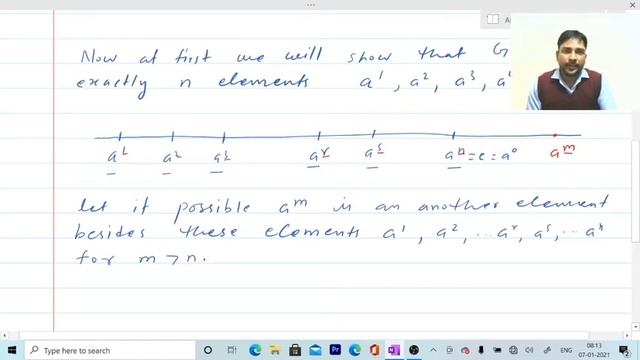 Now at first we will show that G
exactly n elements a¹, a², a³, a
a¹ a² a³ aʳ aˢ aⁿ = e = a⁰ aᵐ
let if possible aᵐ is an another element
besides these elements a¹, a², ... aʳ, aˢ, ... aⁿ
for m > n.
Type here to search
ENG
08:13
07-01-2021